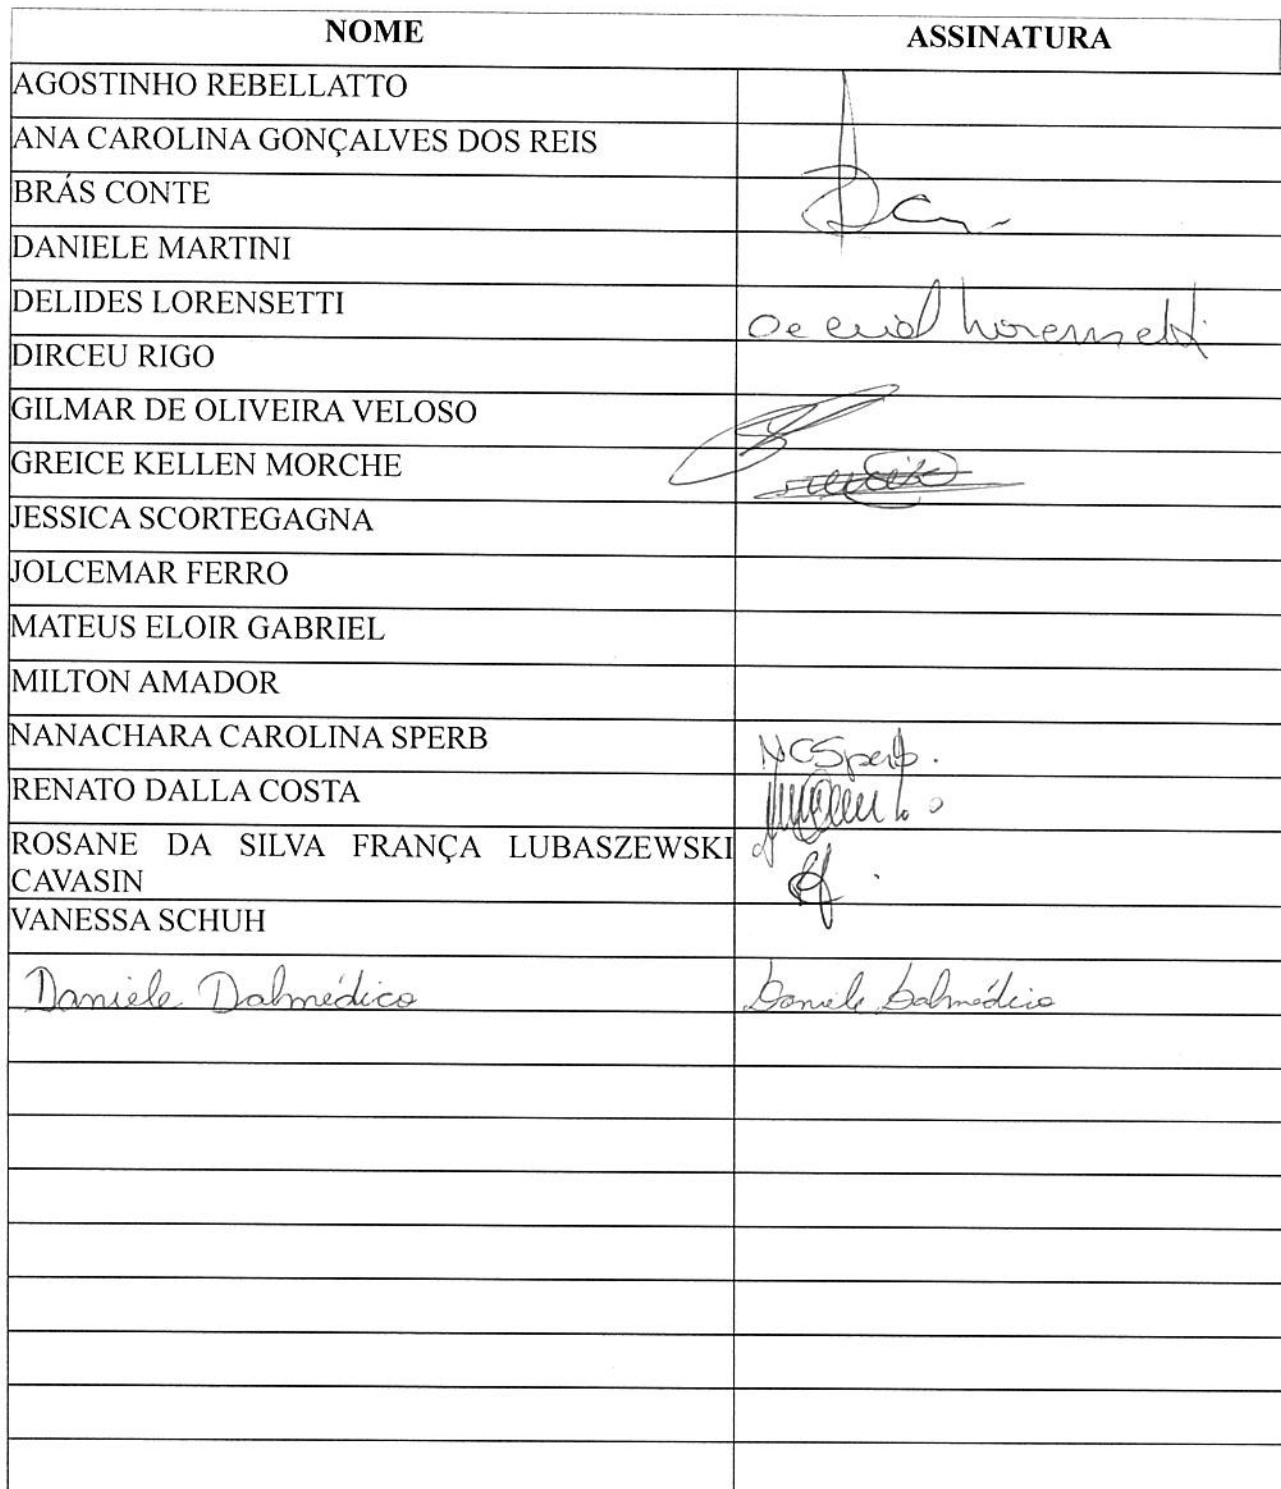 NOME ASSINATURA
AGOSTINHO REBELLATTO
ANA CAROLINA GONÇALVES DOS REIS
BRÁS CONTE
DANIELE MARTINI
DELIDES LORENSETTI
DIRCEU RIGO
GILMAR DE OLIVEIRA VELOSO
GREICE KELLEN MORCHE
JESSICA SCORTEGAGNA
JOLCEMAR FERRO
MATEUS ELOIR GABRIEL
MILTON AMADOR
NANACHARA CAROLINA SPERB NCSperb.
RENATO DALLA COSTA
ROSANE DA SILVA FRANÇA LUBASZEWSKI
CAVASIN
VANESSA SCHUH
Daniele Dalmédico Daniele Dalmédico